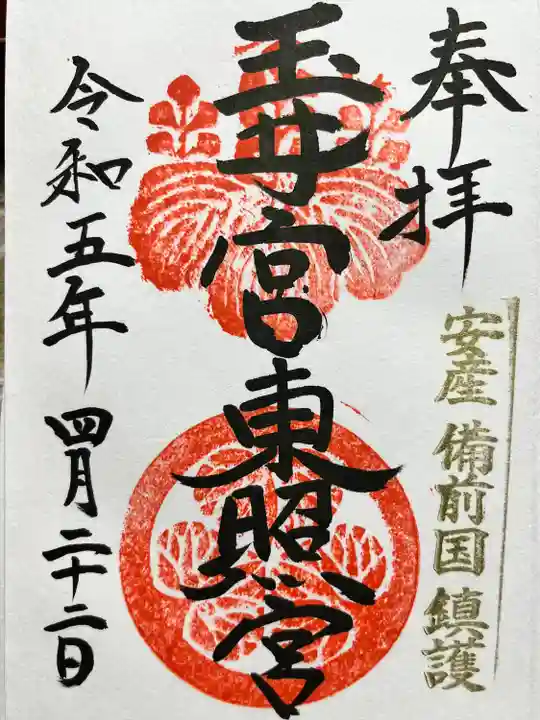 奉拝
安産 備前国 鎮護
玉井宮東照宮
令和五年四月二十二日